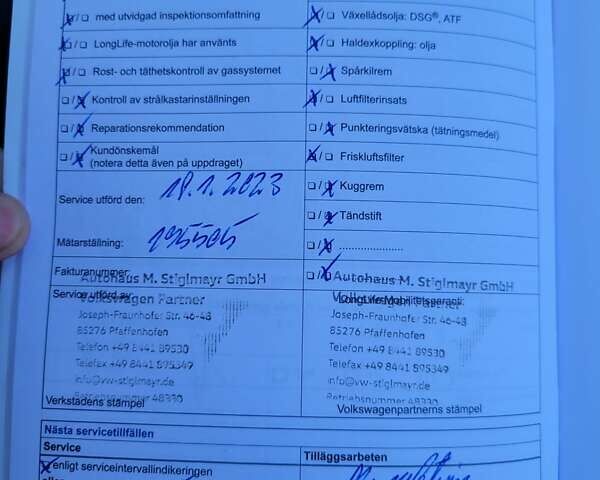 ☒/☐ med utvidgad inspektionsomfattning
☒/☐ Växellådsolja: DSG®, ATF
☒/☐ LongLife-motorolja har använts
☒/☐ Haldexkoppling: olja
☒/☐ Rost- och täthetskontroll av gassystemet
☐/☒ Spårkilrem
☐/☒ Kontroll av strålkastarinställningen
☒/☐ Luftfilterinsats
☐/☒ Reparationsrekommendation
☐/☒ Punkteringsvätska (tätningsmedel)
☐/☒ Kundönskemål
(notera detta även på uppdraget)
☒/☐ Friskluftsfilter
☐/☒ Kuggrem
Service utförd den: 18.1.2023
☐/☒ Tändstift
Mätarställning:
☐/☒ .....................
Fakturanummer:
Autohaus M. Stiglmayr GmbH
☐/☒ Autohaus M. Stiglmayr GmbH
Service utförd av:
Volkswagen Partner
LongLife Mobilitetsgaranti:
Volkswagen Partner
Joseph-Fraunhofer Str. 46-48
Joseph-Fraunhofer Str. 46-48
85276 Pfaffenhofen
85276 Pfaffenhofen
Telefon +49 8441 89530
Telefon +49 8441 89530
Telefax +49 8441 895349
Telefax +49 8441 895349
info@vw-stiglmayr.de
info@vw-stiglmayr.de
Betriebsnummer 48330
Betriebsnummer 48330
Verkstadens stämpel
Volkswagenpartnerns stämpel
Nästa servicetillfällen
Service
Tilläggsarbeten
☒ enligt serviceintervallindikeringen